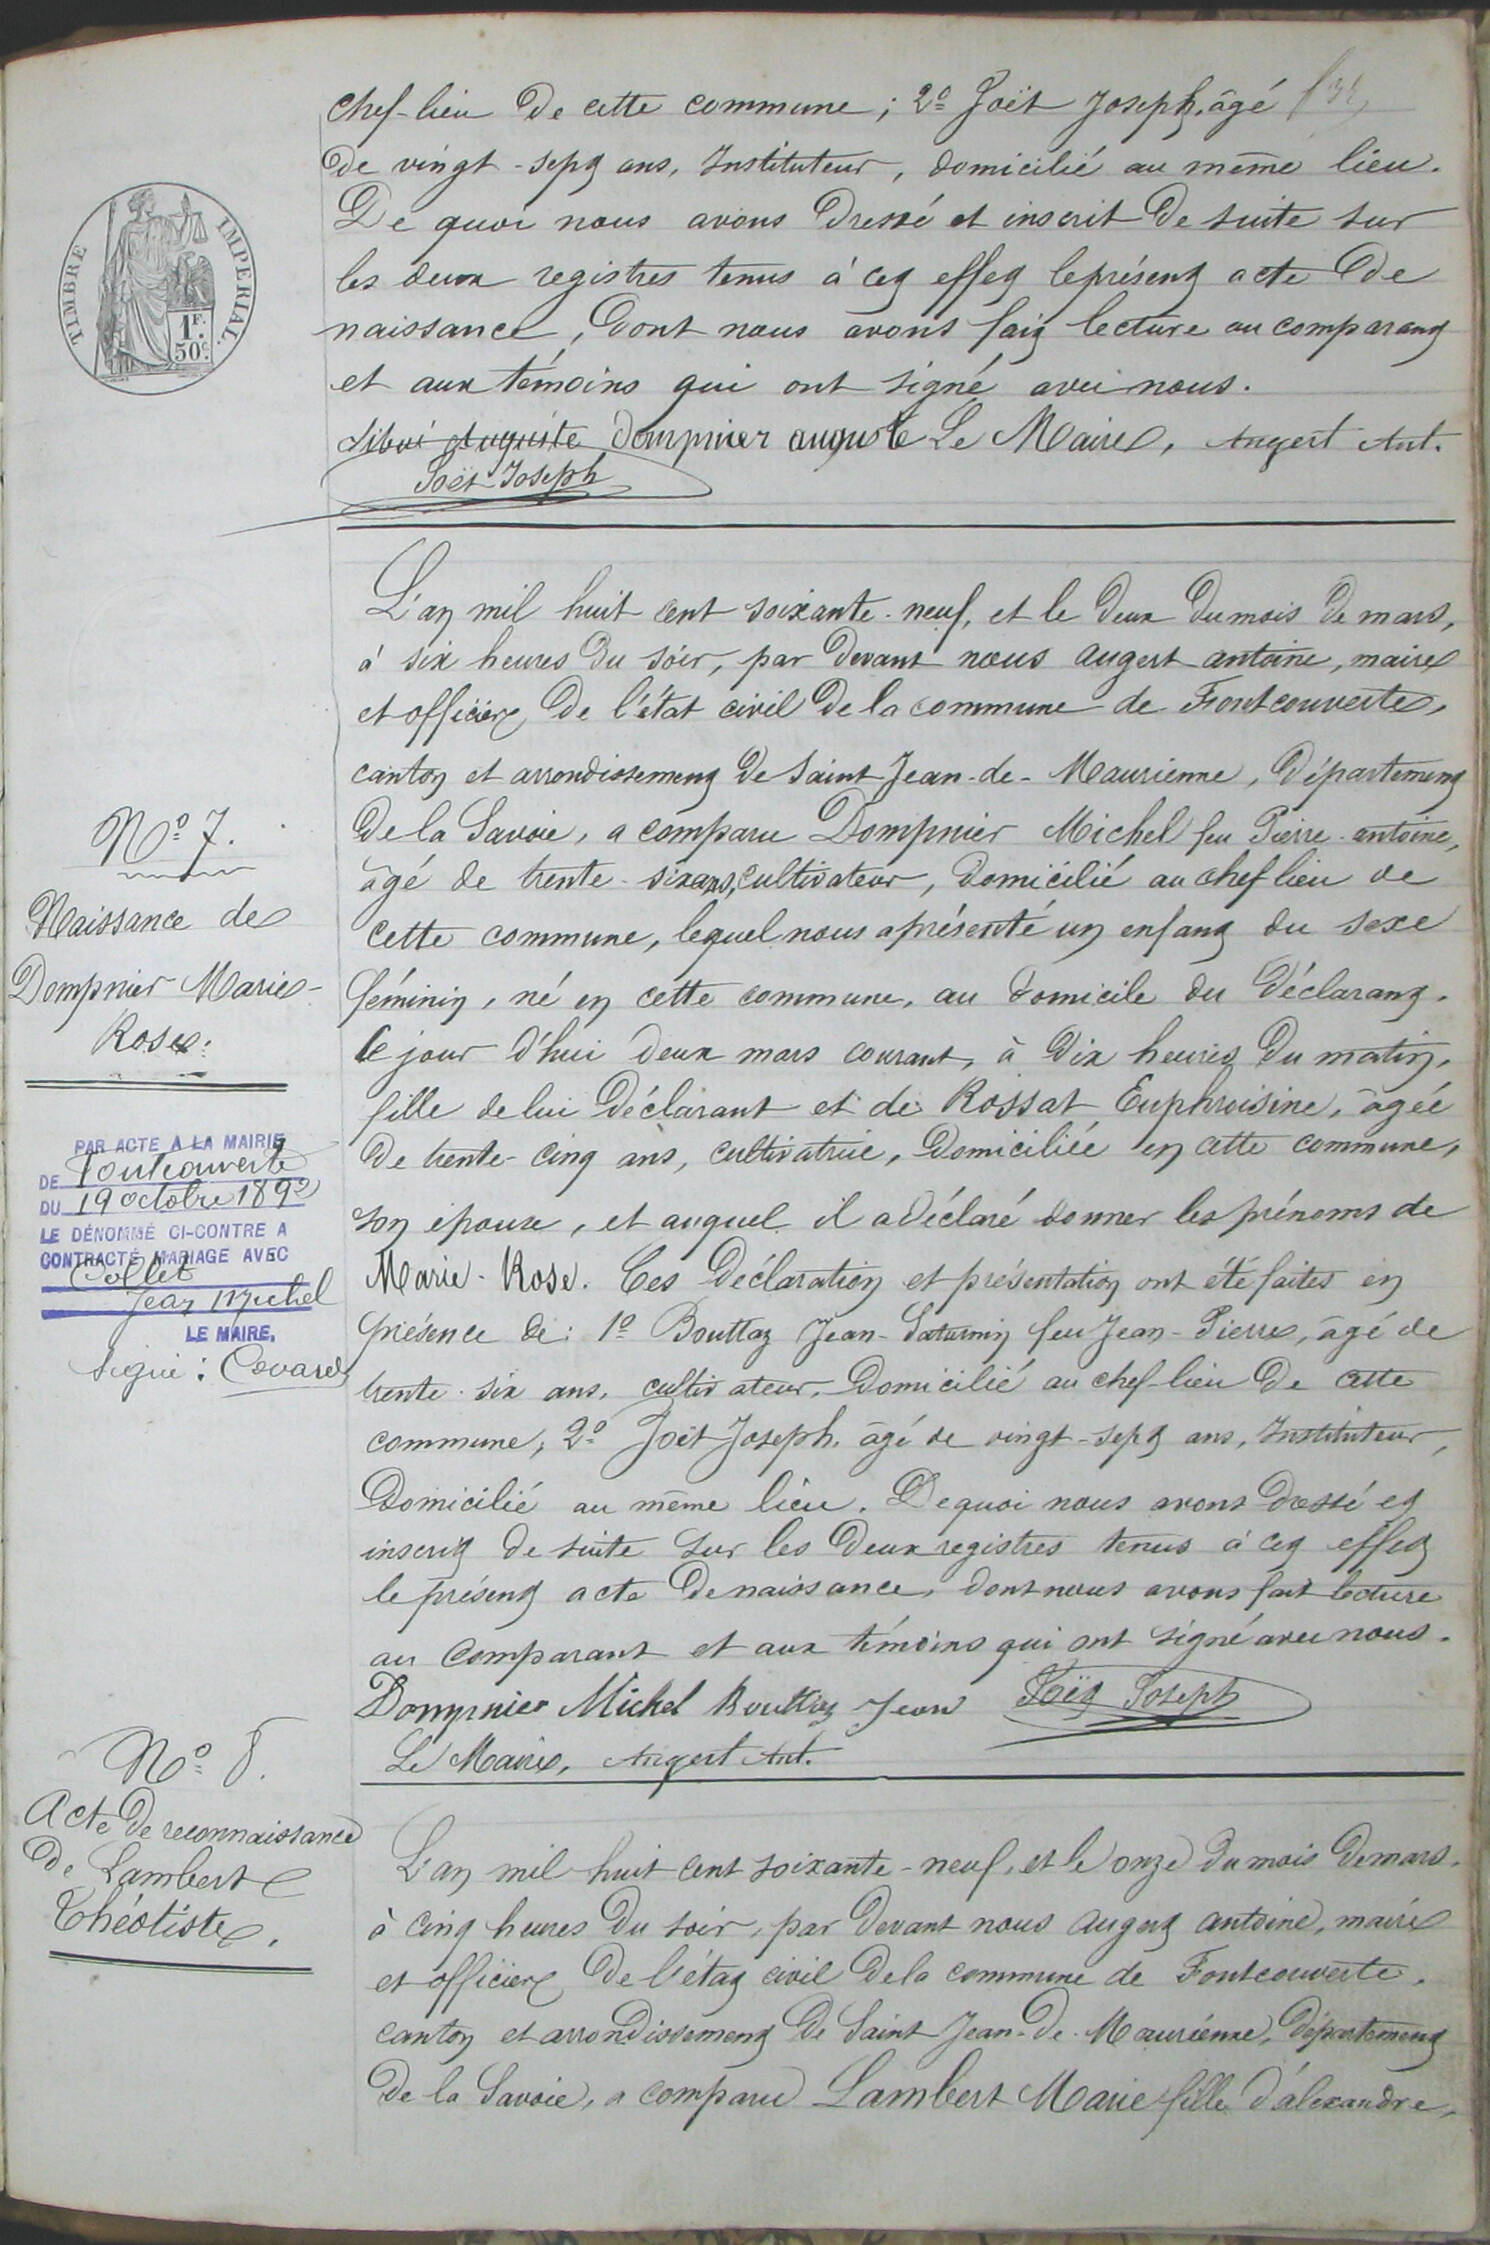 chef-lieu de cette commune ; 2º Joët Joseph, âgé
de vingt-sept ans, Instituteur, domicilié au même lieu.
De quoi nous avons dressé et inscrit de suite sur
les deux registres tenus à cet effet le présent acte de
naissance, dont nous avons fait lecture au comparant
et aux témoins qui ont signé avec nous.
Auguste Dompnier auguste Le Maire, Augert Ant.
Joët Joseph
TIMBRE IMPERIAL.
1F.
50c.
L'an mil huit cent soixante-neuf, et le deux du mois de mars,
à six heures du soir, par devant nous augert antoine, maire
et officier de l'état civil de la commune de Fontcouverte,
canton et arrondissement de Saint-Jean-de-Maurienne, Département
de la Savoie, a comparu Dompnier Michel feu Pierre-antoine,
âgé de trente-six ans, cultivateur, domicilié au chef lieu de
cette commune, lequel nous a présenté un enfant du sexe
féminin, né en cette commune, au domicile du déclarant,
le jour d'hui deux mars courant, à dix heures du matin,
fille de lui déclarant et de Rossat Euphroisine, âgée
de trente-cinq ans, cultivatrice, domiciliée en cette commune,
son épouse, et auquel il a déclaré donner les prénoms de
Marie-Rose. Ces déclaration et présentation ont été faites en
présence de : 1º Bouttaz Jean-Saturnin feu Jean-Pierre, âgé de
trente-six ans, cultivateur, domicilié au chef-lieu de cette
commune ; 2º Joët Joseph, âgé de vingt-sept ans, Instituteur,
domicilié au même lieu. De quoi nous avons dressé et
inscrit de suite sur les deux registres tenus à cet effet
le présent acte de naissance, dont nous avons fait lecture
au comparant et aux témoins qui ont signé avec nous.
Dompnier Michel Bouttaz Jean Joët Joseph
Le Maire, Augert Ant.
Nº 7.
Naissance de
Dompnier Marie-
Rose.
PAR ACTE A LA MAIRIE
DE Fontcouverte
DU 19 octobre 1892
LE DÉNOMMÉ CI-CONTRE A
CONTRACTÉ MARIAGE AVEC
Collet
Jean Michel
LE MAIRE,
Signé : Covarel
Nº 8.
Acte de reconnaissance
de Lambert
Théotiste.
L'an mil huit cent soixante-neuf, et le onze du mois de mars,
à cinq heures du soir, par devant nous augert antoine, maire
et officier de l'état civil de la commune de Fontcouverte,
canton et arrondissement de Saint-Jean-de-Maurienne, département
de la Savoie, a comparu Lambert Marie fille d'alexandre,